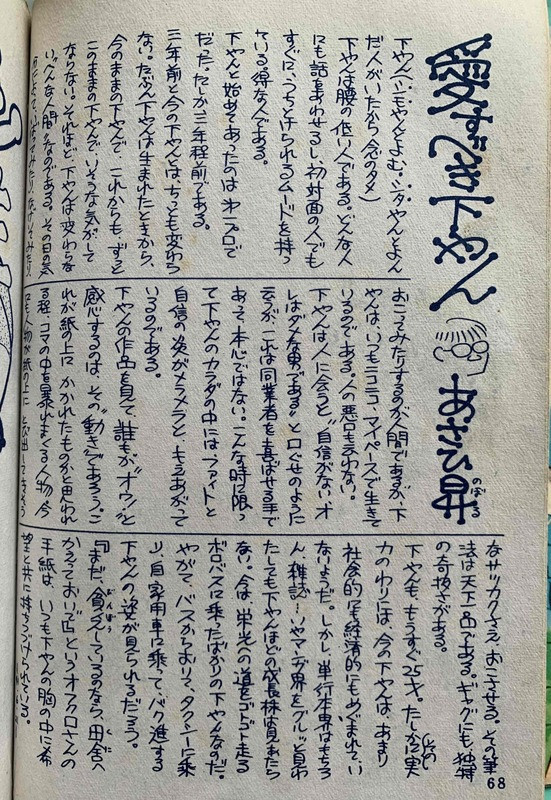 愛すべき下やん
あさひ昇
のぼる
下やん(シモやんとよむ。シタやんとよん
だ人がいたから念のタメ)
下やんは腰の低い人である。どんな人
にも話をあわせるし、初対面の人でも
すぐに、うちとけられるムードを持っ
ている得な人である。
下やんと始めてあったのは 第一プロで
だった。たしか三年程前である。
三年前と今の下やんとは、ちっとも変わら
ない。たぶん下やんは生まれたときから、
今のままの下やんで、これからも、ずっと
このままの下やんで、いそうな気がして
ならない。それほど、下やんは変わらな
い"へんな人間"なのである。その日の気
おこってみたりするのが人間であるが、下
やんは、いつもニコニコ・マイペースで生きて
いるのである。人の悪口も言わない。
下やんは人に会うと"自信がない、オ
レはダメな男である"と口ぐせのように
云うが、これは同業者を喜ばせる手で
あって、本心ではない。こんな時に限っ
て下やんのカラダの中には、ファイトと
自信の炎がメラメラと、もえあがって
いるのである。
下やんの作品を見て、誰もが"オウ!"と
感心するのは、その"動き"であろう。こ
れが紙の上に かかれたものかと思われ
る程、コマの中を暴れまくる人物、今
にも人物が紙の上に 飛び出してきそう
なサッカクさえ おこさせる。その筆
法は天下一品である。ギャグにも独特
の奇抜さがある。
下やんも、もうすぐ25才。たしかに実
じつ
力のわりには、今の下やんは、あまり
社会的にも経済的にもめぐまれてい
ないようだ。しかし、単行本界はもちろ
ん、雑誌…いやマンガ界をグルッと見わ
たしても下やんほどの成長株は見あたら
ない。今は、栄光への道をゴトゴト走る
ボロバスに乗ったばかりの下やんなのだ。
やがて、バスからおりて、タクシーに乗
り、自家用車に乗って、バク進する
下やんの姿が見られるだろう。
『まだ、貧乏しているなら、田舎へ
びんぼう
かえっておいで』というオフクロさんの
手紙は、いつも下やんの胸の中に希
望と共に持ちつづけられている。
68